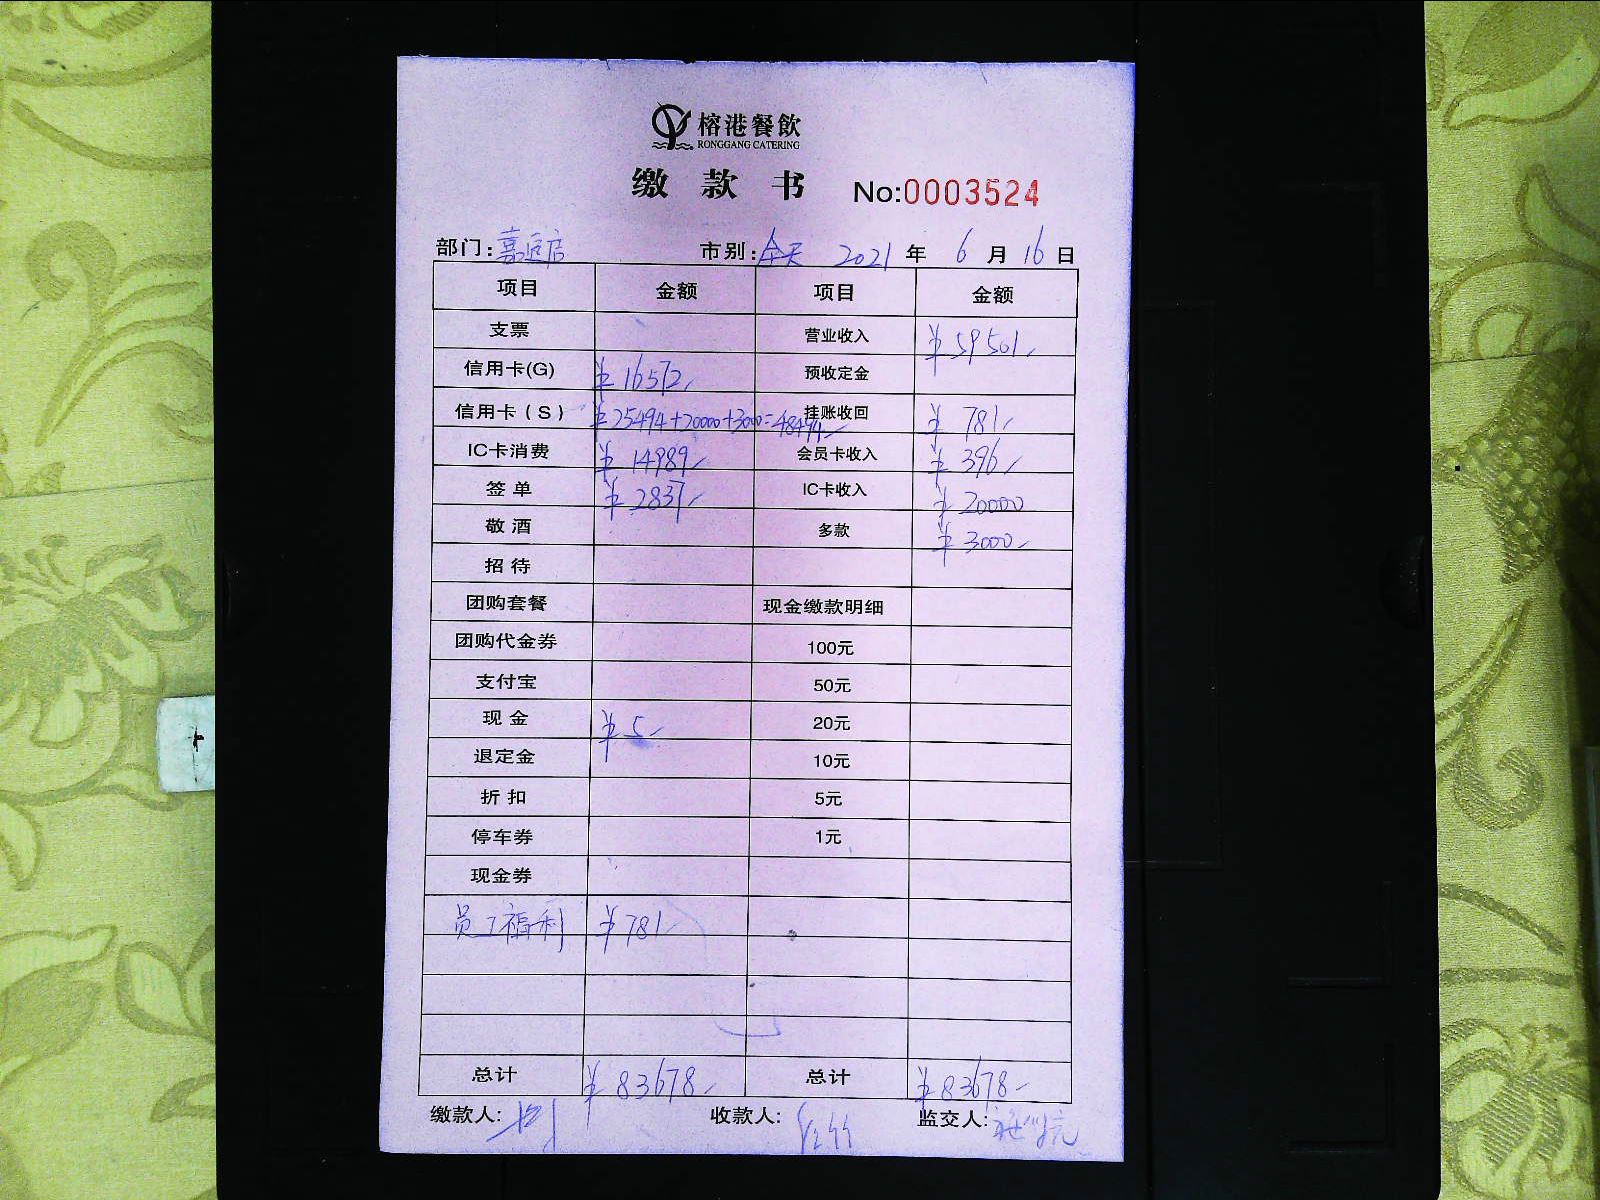 榕港餐飲
RONGGANG CATERING
缴款书 No:0003524
部门:嘉运店 市别:全天 2021年6月16日
项目 金额 项目 金额
支票 营业收入 ¥59501
信用卡(G) ¥16572 预收定金
信用卡(S) ¥25494+20000+3000=48494 挂账收回 ¥781
IC卡消费 ¥14989 会员卡收入 ¥396
签单 ¥2837 IC卡收入 ¥20000
敬酒 多款 ¥3000
招待
团购套餐 现金缴款明细
团购代金券 100元
支付宝 50元
现金 ¥5 20元
退定金 10元
折扣 5元
停车券 1元
现金券
员工福利 ¥781
总计 ¥83678 总计 ¥83678
缴款人: 收款人: 监交人: